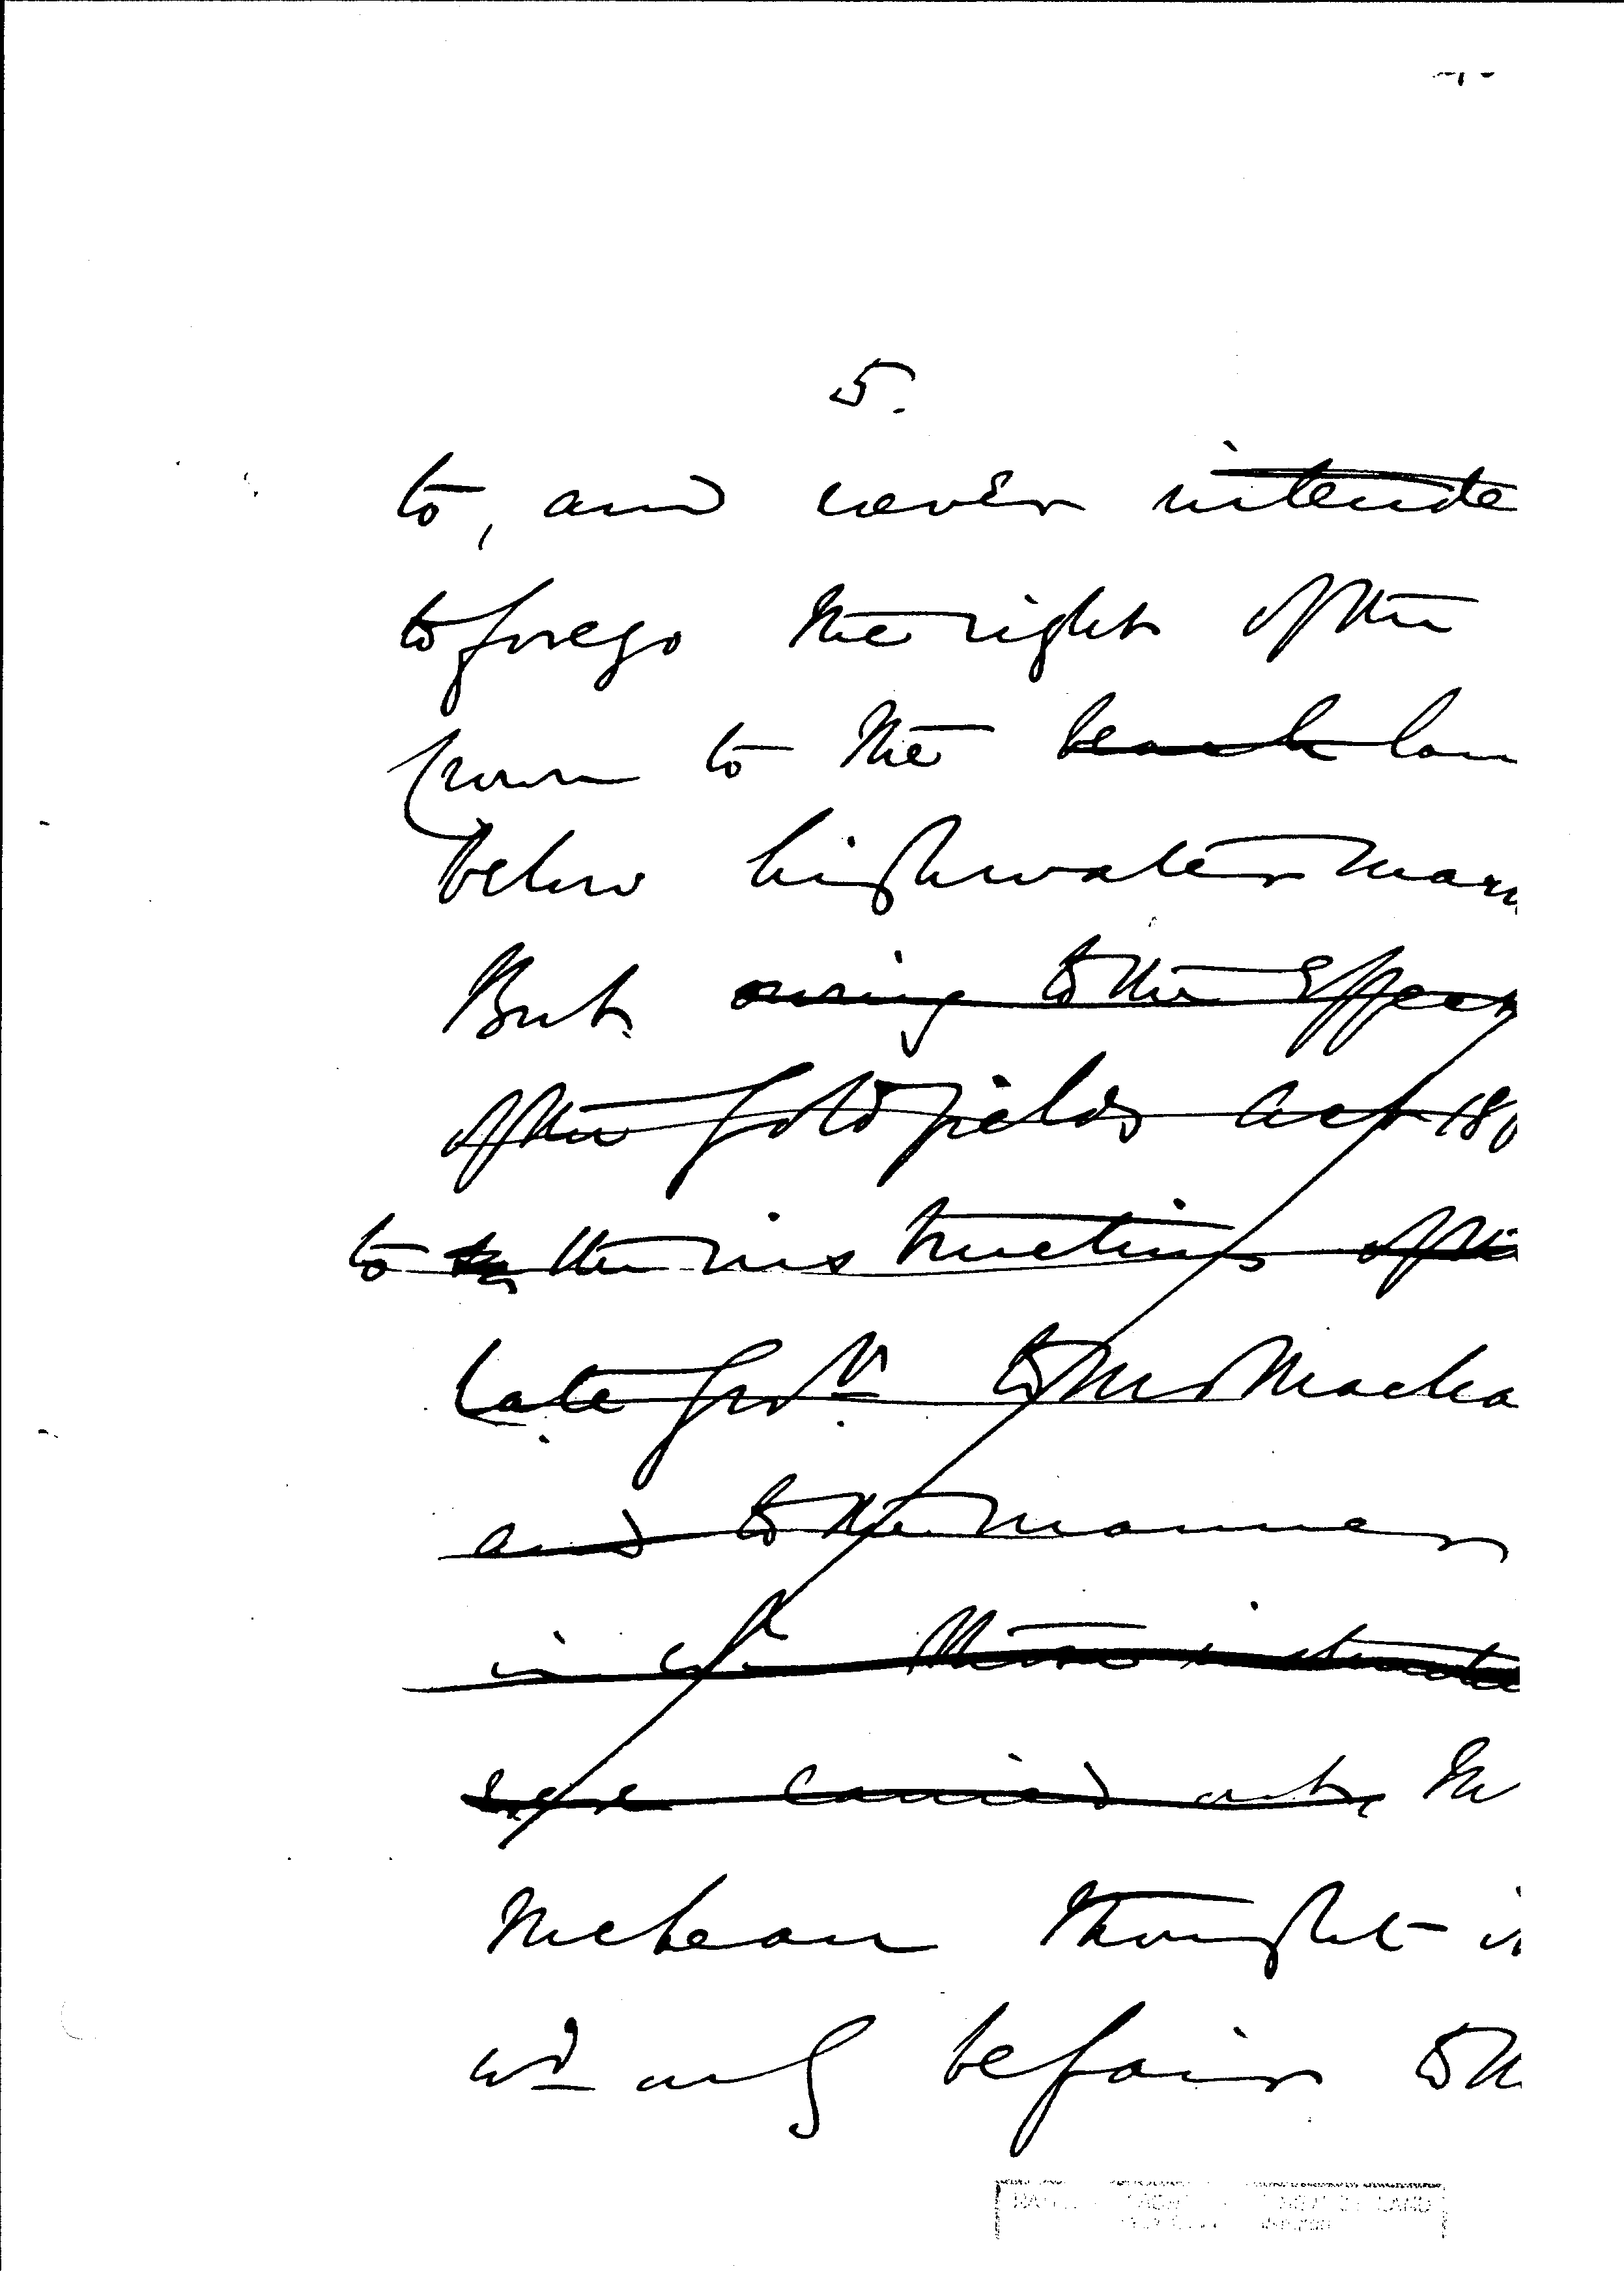 5.
to, and never intende
to forego the right of the
Crown to the beach lan
below highwater mark
But owing to the effect
of the Goldfields Act 186
to the instructions of the
late Govt. to Mr Macka
and to the manner
in wh those instructe
were carried out Mr
McLean thought it
wd only be fair to th